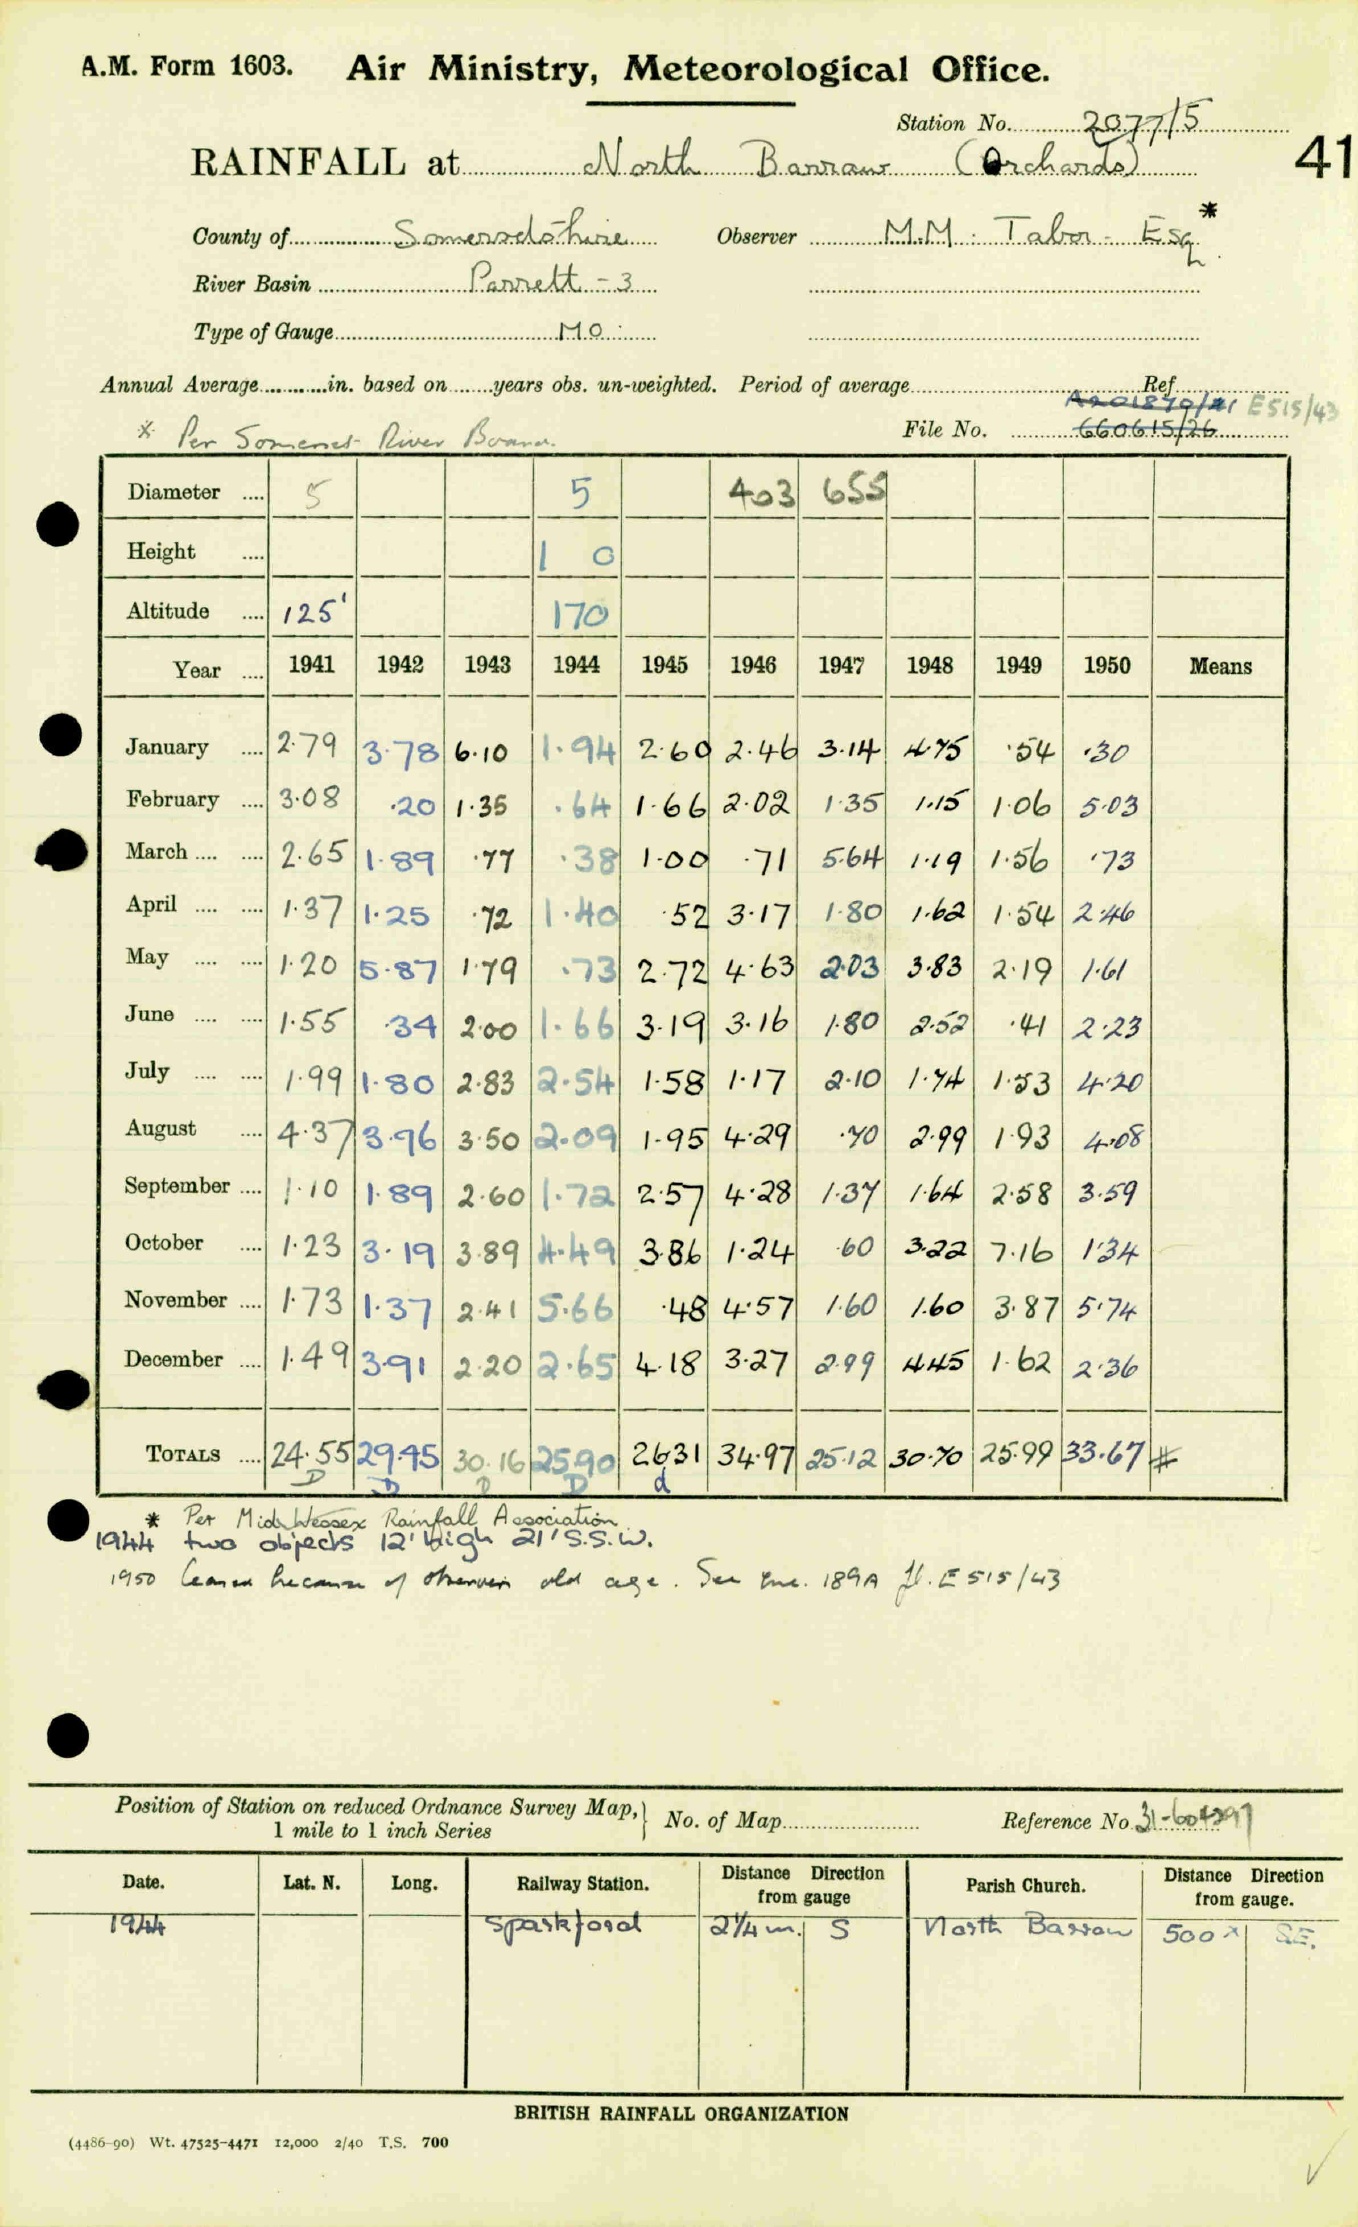 A.M. Form 1603. Air Ministry, Meteorological Office.
Station No. 2077/5
RAINFALL at North Barrow (Orchards) 41
County of Somersetshire Observer M.M. Tabor Esq *
River Basin Parrett - 3
Type of Gauge M.O.
Annual Average in. based on years obs. un-weighted. Period of average Ref.
A201870/41 E515/43
* Per Somerset River Board. File No. 660615/26
Diameter 5 5 403 655
Height 1 0
Altitude 125' 170
Year 1941 1942 1943 1944 1945 1946 1947 1948 1949 1950 Means
January 2.79 3.78 6.10 1.94 2.60 2.46 3.14 4.75 .54 .30
February 3.08 .20 1.35 .64 1.66 2.02 1.35 1.15 1.06 5.03
March 2.65 1.89 .77 .38 1.00 .71 5.64 1.19 1.56 .73
April 1.37 1.25 .72 1.40 .52 3.17 1.80 1.62 1.54 2.46
May 1.20 5.87 1.79 .73 2.72 4.63 2.03 3.83 2.19 1.61
June 1.55 .34 2.00 1.66 3.19 3.16 1.80 2.52 .41 2.23
July 1.99 1.80 2.83 2.54 1.58 1.17 2.10 1.74 1.53 4.20
August 4.37 3.96 3.50 2.09 1.95 4.29 .70 2.99 1.93 4.08
September 1.10 1.89 2.60 1.72 2.57 4.28 1.37 1.64 2.58 3.59
October 1.23 3.19 3.89 4.49 3.86 1.24 .60 3.22 7.16 1.34
November 1.73 1.37 2.41 5.66 .48 4.57 1.60 1.60 3.87 5.74
December 1.49 3.91 2.20 2.65 4.18 3.27 2.99 4.45 1.62 2.36
TOTALS 24.55 29.45 30.16 25.90 26.31 34.97 25.12 30.70 25.99 33.67 #
D D D D d
* Per Mid Wessex Rainfall Association
1944 two objects 12' high 21' S.S.W.
1950 Ceased because of observers old age. See enc. 189A fl. E515/43
Position of Station on reduced Ordnance Survey Map, No. of Map Reference No 31-604297
1 mile to 1 inch Series
Date. Lat. N. Long. Railway Station. Distance Direction from gauge Parish Church. Distance Direction from gauge.
1944 Sparkford 2¼ m. S North Barrow 500 x S.E.
BRITISH RAINFALL ORGANIZATION
(4486-90) Wt. 47525-4471 12,000 2/40 T.S. 700